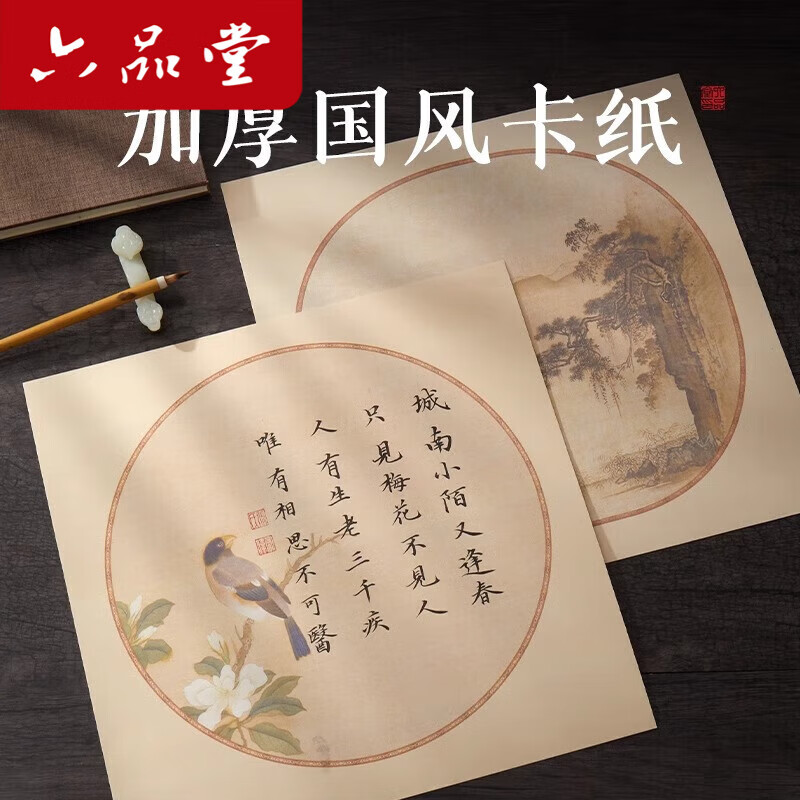 六品堂
加厚国风卡纸
城南小陌又逢春
只見梅花不見人
人有生老三千疾
唯有相思不可醫